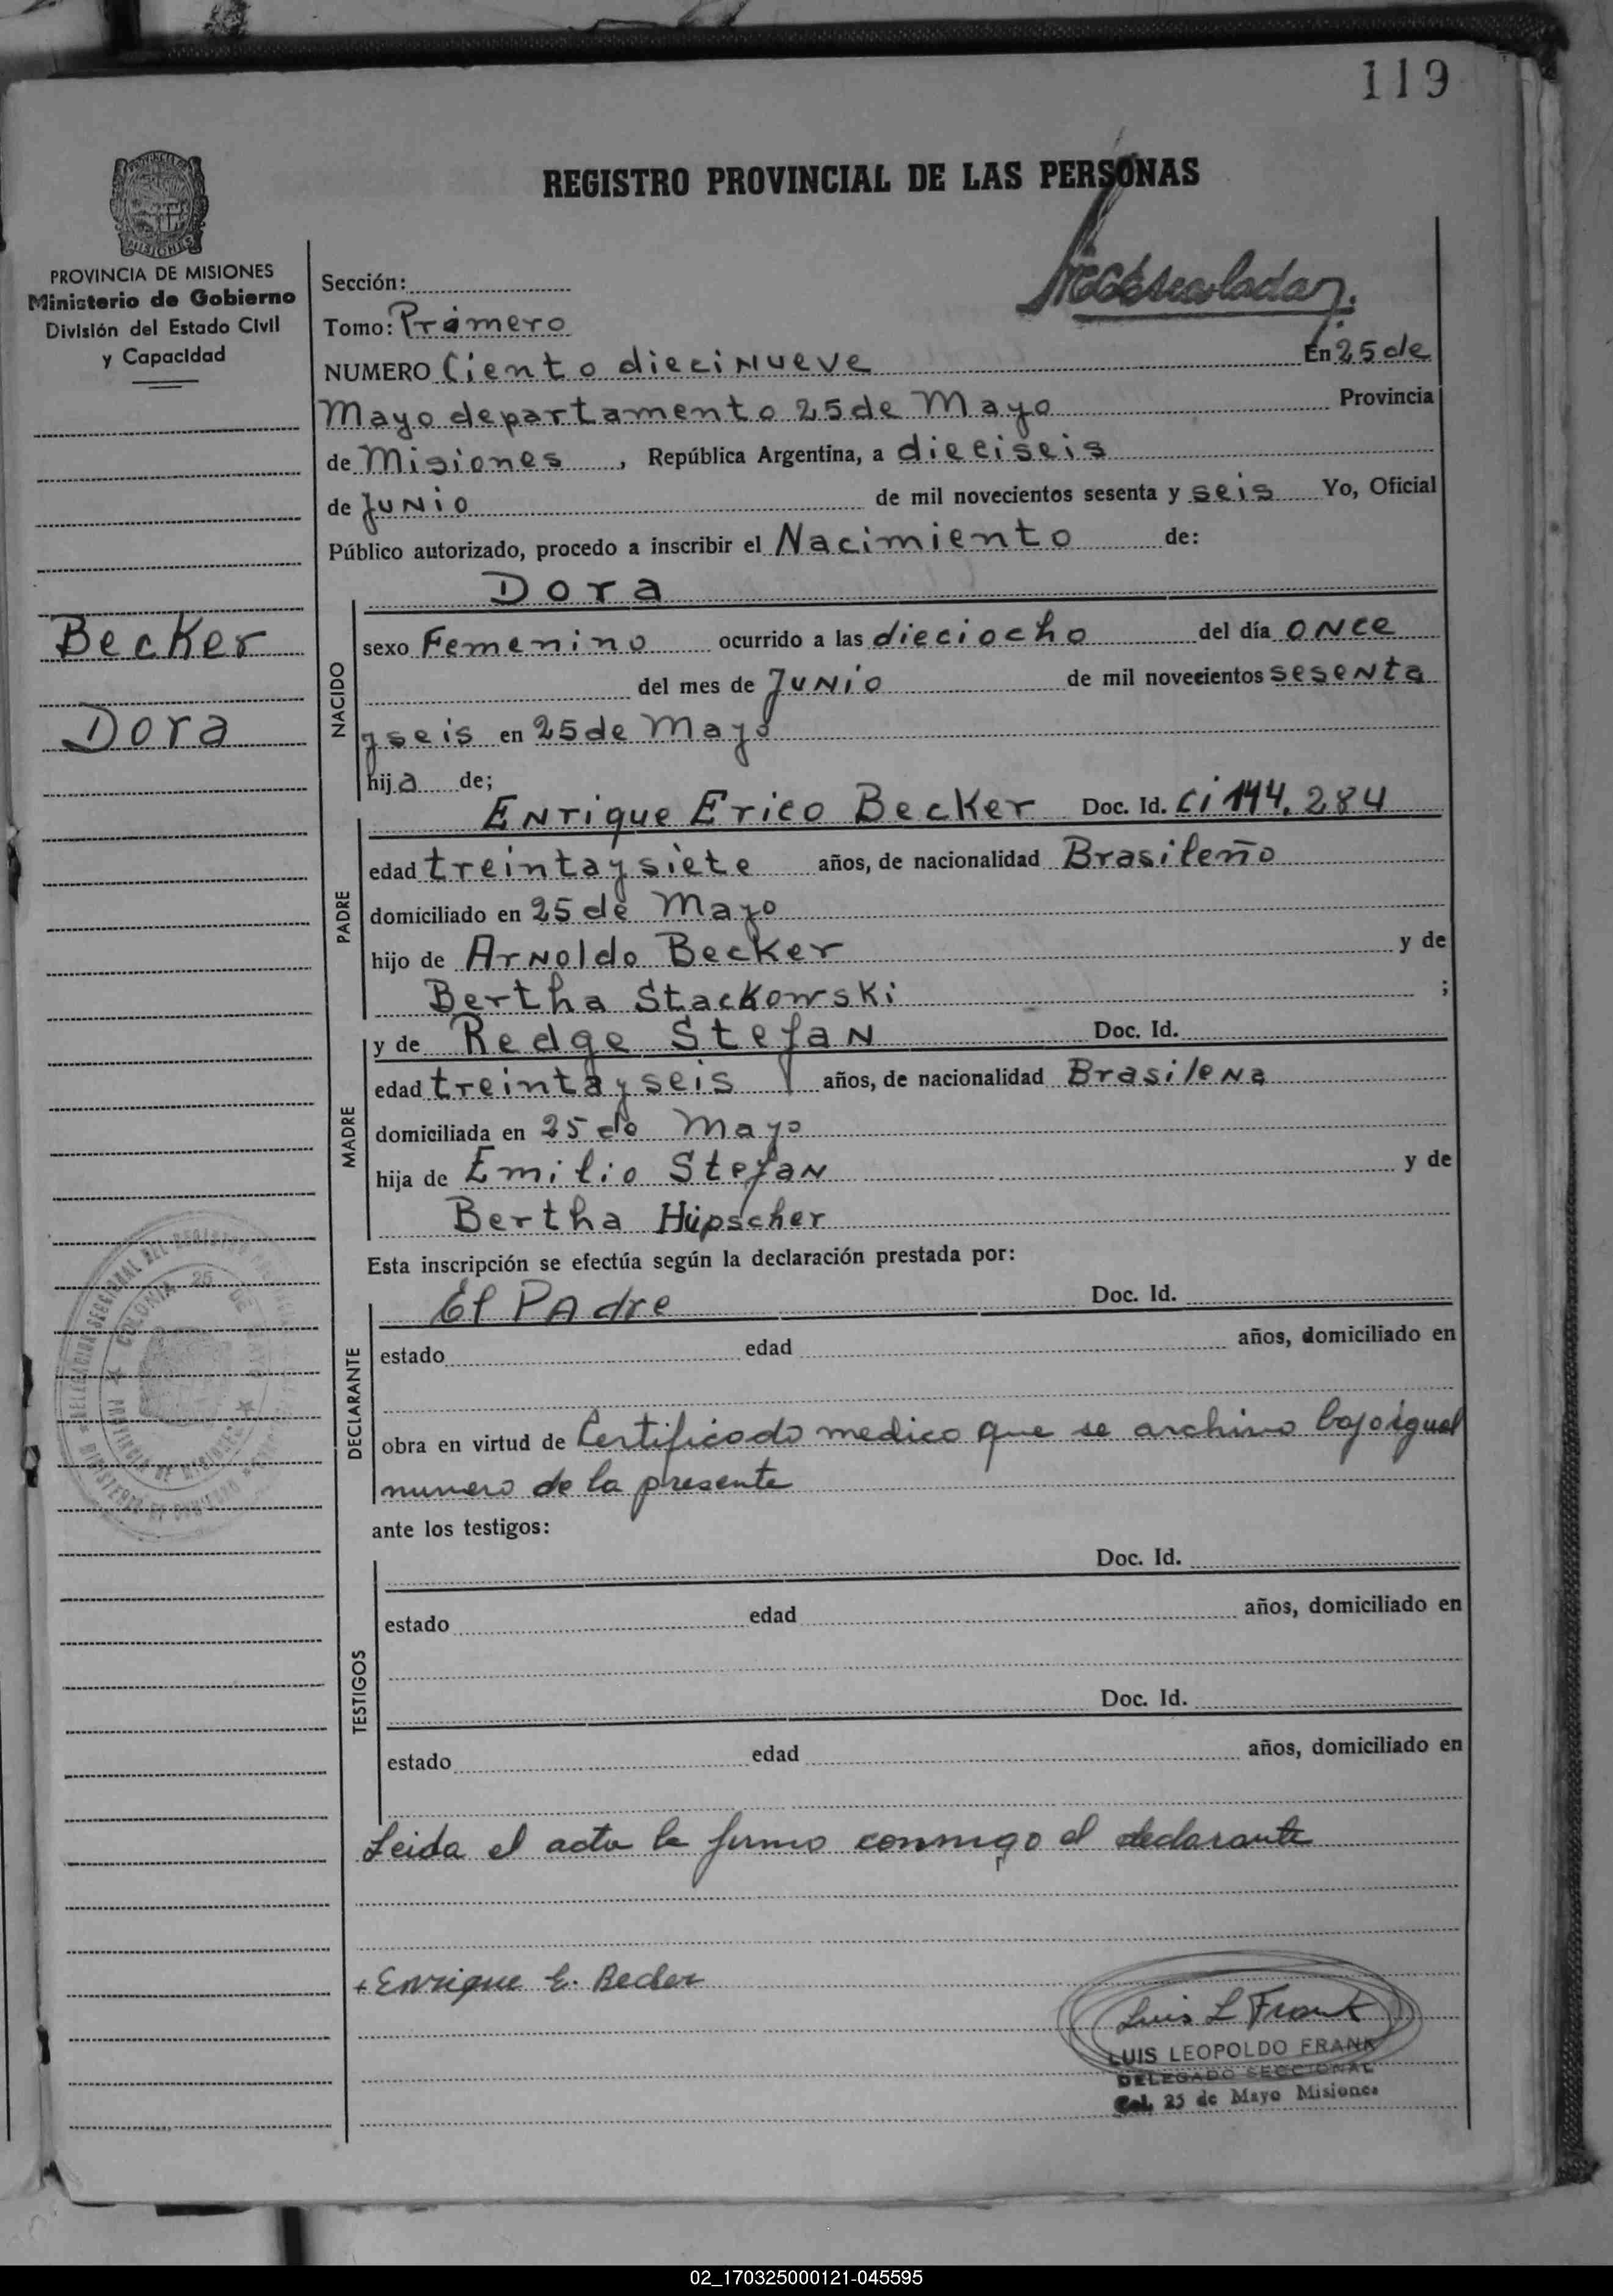 119
REGISTRO PROVINCIAL DE LAS PERSONAS
MISIONES
PROVINCIA DE MISIONES
Ministerio de Gobierno
División del Estado Civil
y Capacidad
Becker
Dora
Sección:
Tomo: Primero
NUMERO Ciento diecinueve En 25 de
Mayo departamento 25 de Mayo Provincia
de Misiones, República Argentina, a dieciseis
de Junio de mil novecientos sesenta y seis Yo, Oficial
Público autorizado, procedo a inscribir el Nacimiento de:
NACIDO
Dora
sexo Femenino ocurrido a las dieciocho del día once
del mes de Junio de mil novecientos sesenta
y seis en 25 de Mayo
hija de;
PADRE
Enrique Erico Becker Doc. Id. Ci 144.284
edad treinta y siete años, de nacionalidad Brasileño
domiciliado en 25 de Mayo
hijo de Arnoldo Becker y de
Bertha Stackowski ;
MADRE
y de Redge Stefan Doc. Id.
edad treinta y seis años, de nacionalidad Brasilena
domiciliada en 25 de Mayo
hija de Emilio Stefan y de
Bertha Hüpscher
Esta inscripción se efectúa según la declaración prestada por:
DECLARANTE
El PAdre Doc. Id.
estado edad años, domiciliado en
obra en virtud de Certificado medico que se archiva bajo igual
numero de la presente
ante los testigos:
TESTIGOS
Doc. Id.
estado edad años, domiciliado en
Doc. Id.
estado edad años, domiciliado en
Leida el acta la firma conmigo el declarante
+ Enrique E. Becker
Luis L Frank
LUIS LEOPOLDO FRANK
DELEGADO SECCIONAL
Col. 25 de Mayo Misiones
COLONIA 25 DE MAYO
PROVINCIA DE MISIONES
02_170325000121-045595